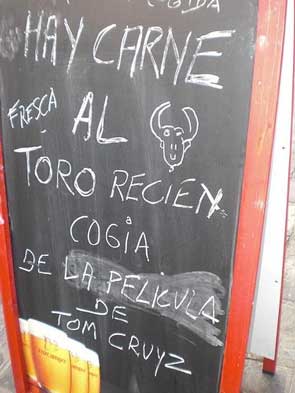 COGIDA
HAY CARNE
FRESCA AL
TORO RECIEN
COGIA
DE LA PELICULA
DE
TOM CRUYZ